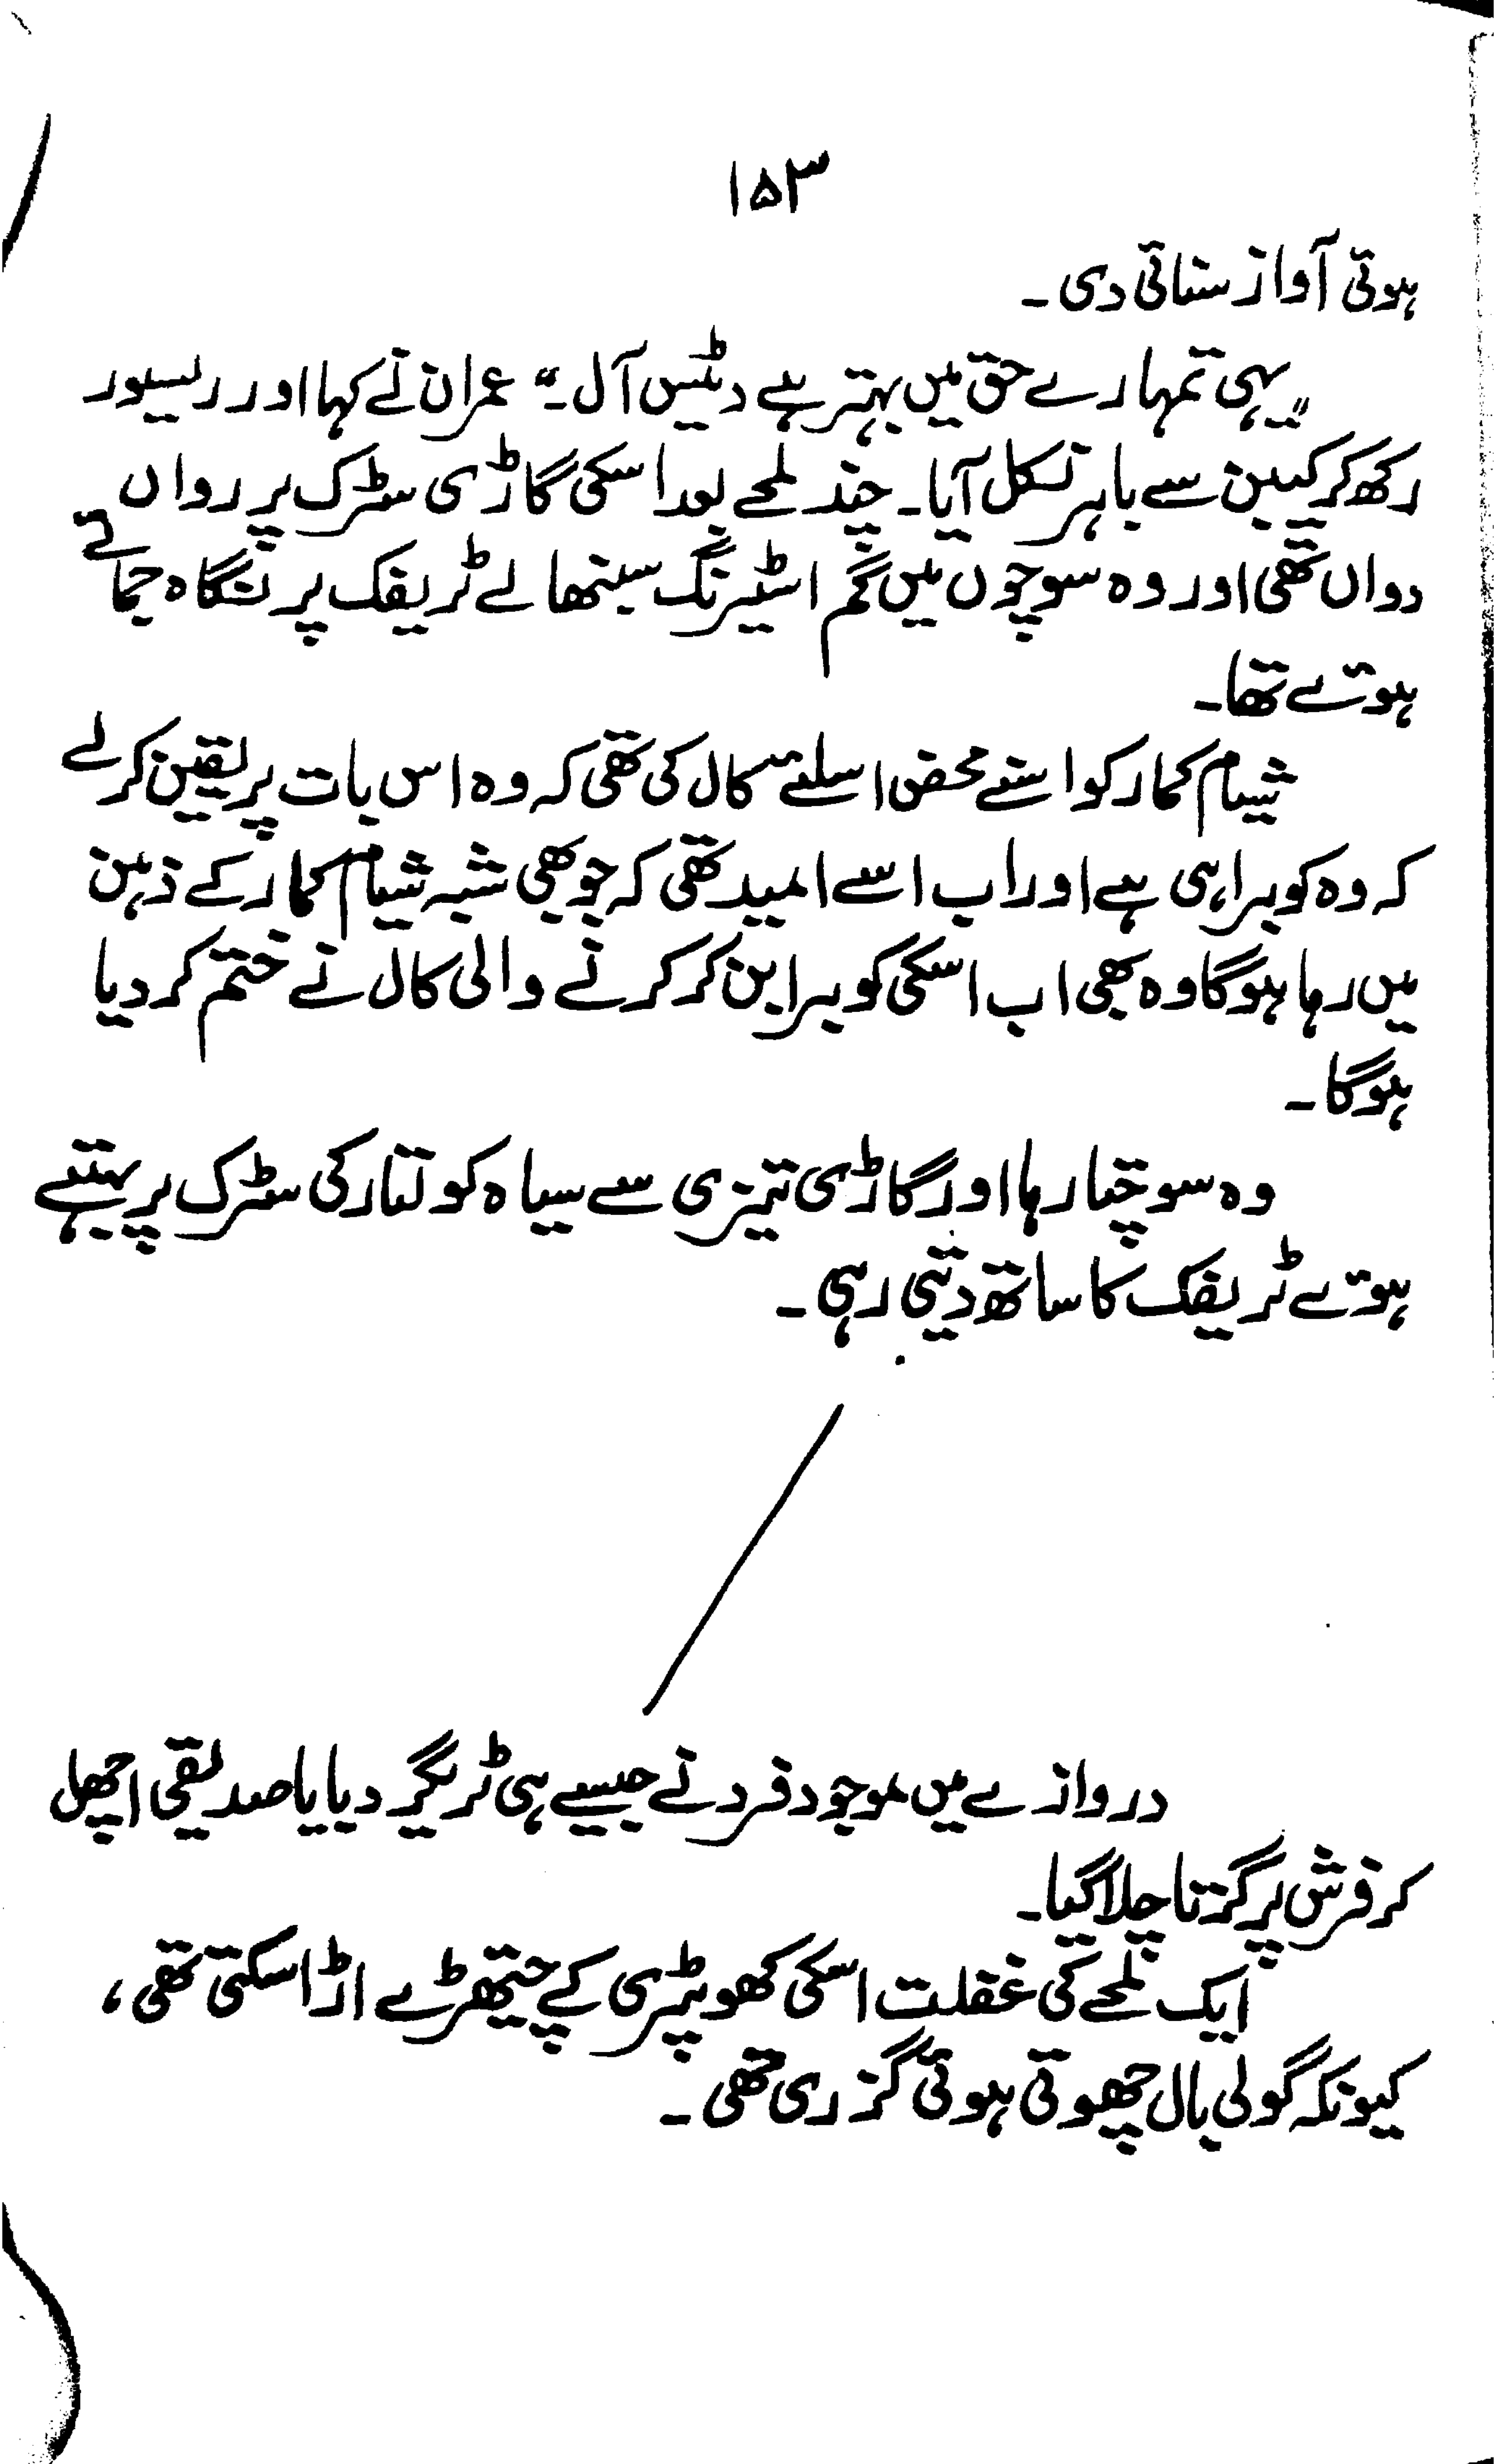 ۱۵۳
ہوئی آواز سنائی دی۔
”یہی تمہارے حق میں بہتر ہے دیٹس آل۔“ عمران نے کہا اور ریسیور
رکھ کر کیبن سے باہر نکل آیا۔ چند لمحے بعد اسکی گاڑی سڑک پر رواں
دواں تھی اور وہ سوچوں میں گم اسٹیرنگ سنبھالے ٹریفک پر نگاہ جمائے
ہوئے تھا۔
شیام کمار کو اسنے محض اسلئے کال کی تھی کہ وہ اس بات پر یقین کرلے
کہ وہ کوبرا ہی ہے اور اب اسے امید تھی کہ جو بھی شبہ شیام کمار کے ذہن
میں رہا ہوگا وہ بھی اب اسکی کوبرا بن کر کرنے والی کال نے ختم کر دیا
ہوگا۔
وہ سوچتا رہا اور گاڑی تیزی سے سیاہ کولتار کی سڑک پر بہتے
ہوئے ٹریفک کا ساتھ دیتی رہی۔
دروازے میں موجود فرد نے جیسے ہی ٹریگر دبایا صدیقی اچھل
کر فرش پر گرتا چلا گیا۔
ایک لمحے کی غفلت اسکی کھوپڑی کے چیتھڑے اڑا سکتی تھی،
کیونکہ گولی بال چھوتی ہوئی گزری تھی۔